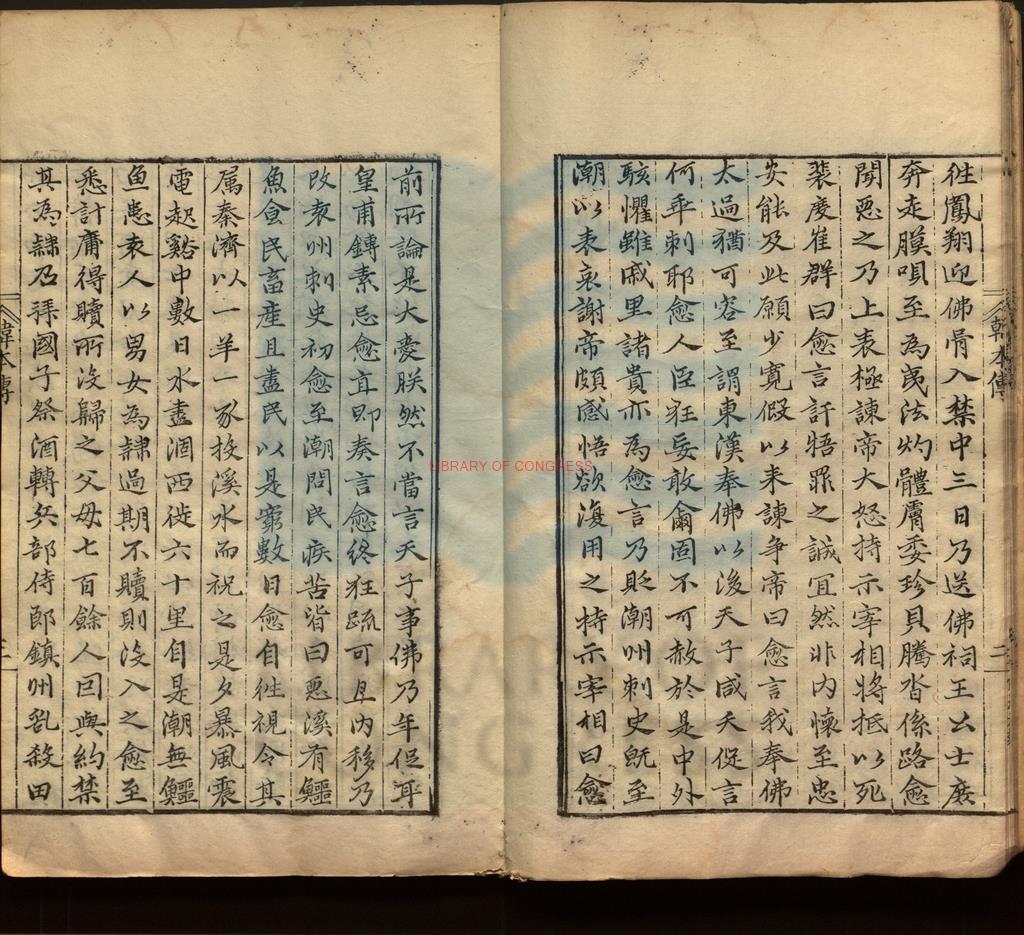 徃鳳翔迎佛骨入禁中三日乃送佛祠王公士庶
奔走膜唄至為夷法灼體膚委珍貝騰沓係路愈
聞惡之乃上表極諫帝大怒持示宰相將抵以死
裴度崔群曰愈言訐牾罪之誠宜然非内懷至忠
安能及此願少寛假以来諫争帝曰愈言我奉佛
太過猶可容至謂東漢奉佛以後天子咸夭促言
何乖刺耶愈人臣狂妄敢爾固不可赦於是中外
駭懼雖戚里諸貴亦為愈言乃貶潮州刺史既至
潮以表哀謝帝頗感悟欲復用之持示宰相曰愈
韓本傳
二
前所論是大愛朕然不當言天子事佛乃年促耳
皇甫鏄素忌愈直即奏言愈終狂疏可且内移乃
改袁州刺史初愈至潮問民疾苦皆曰惡溪有鱷
魚食民畜産且盡民以是窮數日愈自徃視令其
属秦濟以一羊一豕投溪水而祝之是夕暴風震
電起谿中數日水盡涸西徙六十里自是潮無鱷
魚患袁人以男女為隷過期不贖則没入之愈至
悉計庸得贖所没歸之父母七百餘人因與約禁
其為隷召拜國子祭酒轉兵部侍郎鎮州亂殺田
韓本傳
三
LIBRARY OF CONGRESS